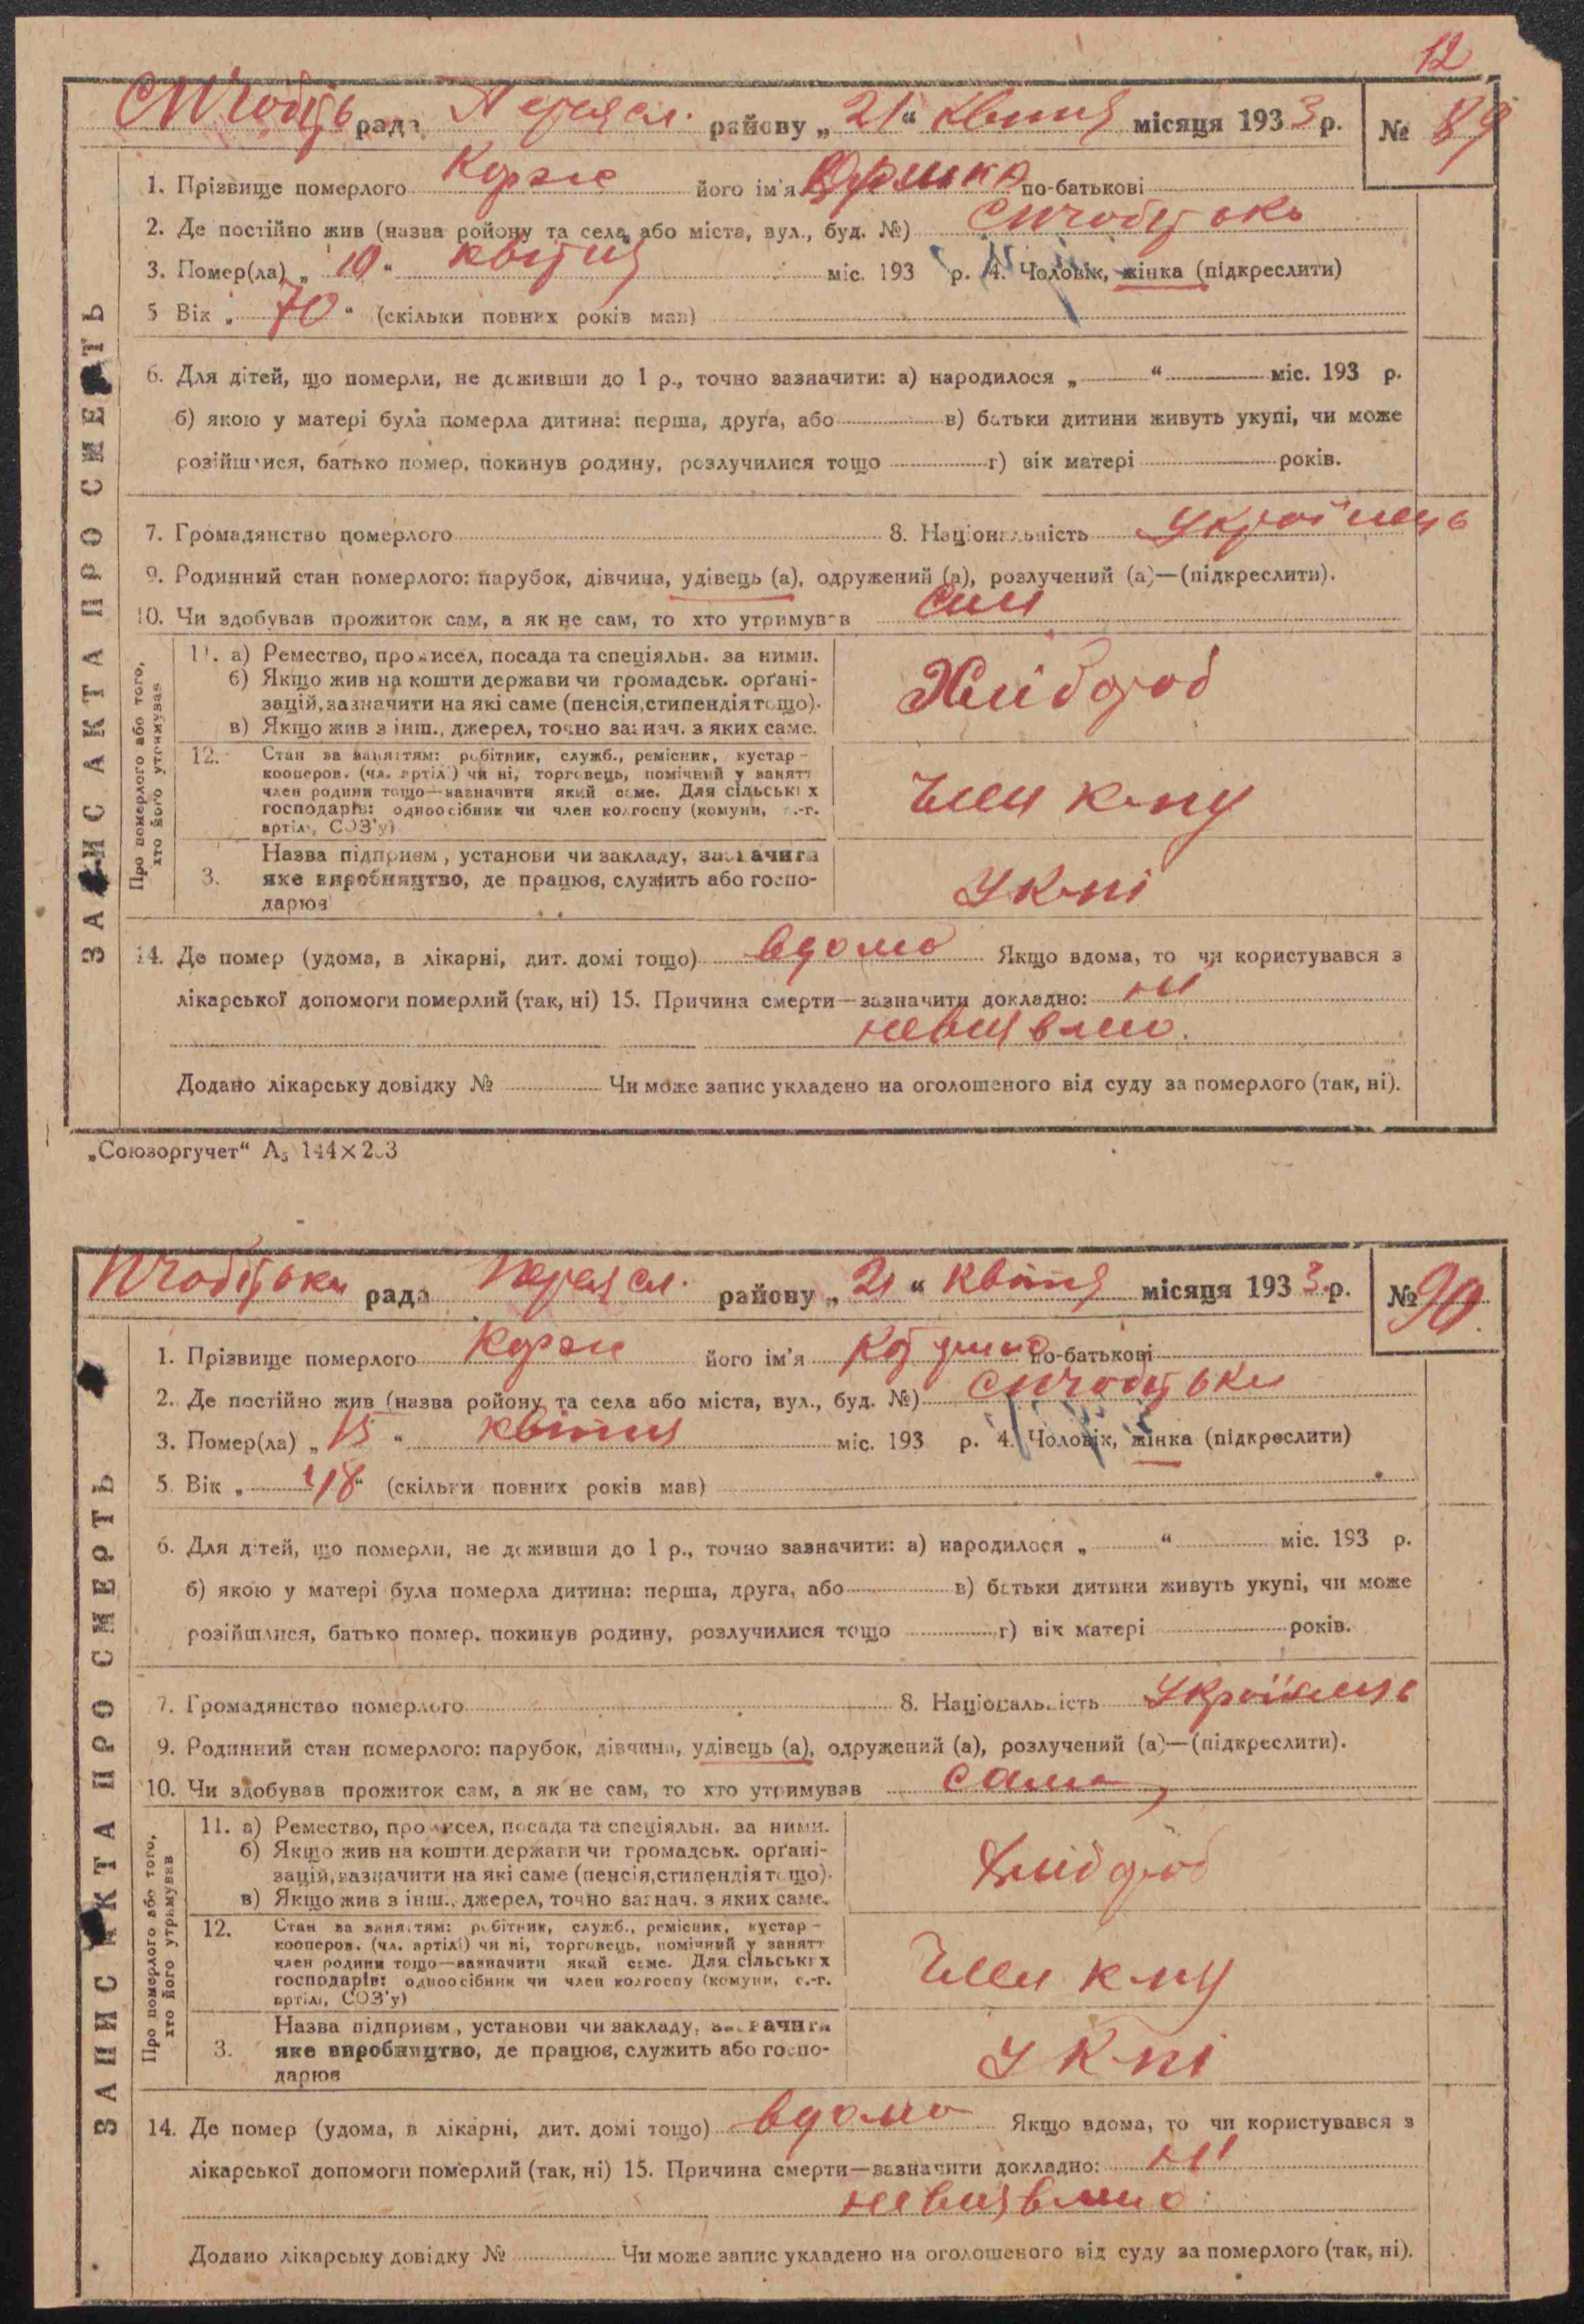 12
рада Переясл. району „ 21 “ квітня місяця 1933 р. № 89
1. Прізвище померлого Корж його ім'я по-батькові
2. Де постійно жив (назва ройону та села, або міста, вул., буд. №)
3. Помер(ла) „ 10 “ квітня міс. 193 р. 4. Чоловік, жінка (підкреслити)
5 Вік „ 70 “ (скільки повних років мав)
6. Для дітей, що померли, не доживши до 1 р., точно зазначити: а) народилося „ “ міс. 193 р.
б) якою у матері була померла дитина: перша, друга, або в) батьки дитини живуть укупі, чи може
розійшлися, батько помер, покинув родину, розлучилися тощо г) вік матері років.
7. Громадянство померлого 8. Національність Українець
9. Родинний стан померлого: парубок, дівчина, удівець (а), одружений (а), розлучений (а)—(підкреслити).
10. Чи здобував прожиток сам, а як не сам, то хто утримував син
11. а) Ремество, промисел, посада та спеціяльн. за ними.
б) Якщо жив на кошти держави чи громадськ. орґані-
зацій, зазначити на які саме (пенсія, стипендія тощо).
в) Якщо жив з інш., джерел, точно зазнач. з яких саме.
Хлібороб
12. Стан за заняттям: робітник, служб., ремісник, кустар-
кооперов. (чл. артілі) чи ні, торговець, помічний у занятт
член родини тощо—зазначити який саме. Для сільських
господарів: одноосібник чи член колгоспу (комуни, с.-г.
артілі, СОЗ'у)
Член к-пу
3. Назва підприєм, установи чи закладу, зазначити
яке виробництво, де працює, служить або госпо-
дарює
У к-пі
14. Де помер (удома, в лікарні, дит. домі тощо) вдома Якщо вдома, то чи користувався з
лікарської допомоги померлий (так, ні) 15. Причина смерти—зазначити докладно: ні
невиявлено.
Додано лікарську довідку № Чи може запис укладено на оголошеного від суду за померлого (так, ні).
ЗАПИС АКТА ПРО СМЕРТЬ
Про померлого або того,
хто його утримував
„Союзоргучет“ А5 144×203
рада Переясл. району „ 21 “ квітня місяця 1933 р. № 90
1. Прізвище померлого Корж його ім'я по-батькові
2. Де постійно жив (назва ройону та села або міста, вул., буд. №)
3. Помер(ла) „ 15 “ квітня міс. 193 р. 4. Чоловік, жінка (підкреслити)
5. Вік „ 48 “ (скільки повних років мав)
6. Для дітей, що померли, не доживши до 1 р., точно зазначити: а) народилося „ “ міс. 193 р.
б) якою у матері була померла дитина: перша, друга, або в) батьки дитини живуть укупі, чи може
розійшлися, батько помер, покинув родину, розлучилися тощо г) вік матері років.
7. Громадянство померлого 8. Національність Українець
9. Родинний стан померлого: парубок, дівчина, удівець (а), одружений (а), розлучений (а)—(підкреслити).
10. Чи здобував прожиток сам, а як не сам, то хто утримував сама
11. а) Ремество, промисел, посада та спеціяльн. за ними.
б) Якщо жив на кошти держави чи громадськ. орґані-
зацій, зазначити на які саме (пенсія, стипендія тощо).
в) Якщо жив з інш., джерел, точно зазнач. з яких саме.
Хлібороб
12. Стан за заняттям: робітник, служб., ремісник, кустар-
кооперов. (чл. артілі) чи ні, торговець, помічний у занятт
член родини тощо—зазначити який саме. Для сільських
господарів: одноосібник чи член колгоспу (комуни, с.-г.
артілі, СОЗ'у)
Член к-пу
3. Назва підприєм, установи чи закладу, зазначити
яке виробництво, де працює, служить або госпо-
дарює
У к-пі
14. Де помер (удома, в лікарні, дит. домі тощо) вдома Якщо вдома, то чи користувався з
лікарської допомоги померлий (так, ні) 15. Причина смерти—зазначити докладно: ні
невиявлено.
Додано лікарську довідку № Чи може запис укладено на оголошеного від суду за померлого (так, ні).
ЗАПИС АКТА ПРО СМЕРТЬ
Про померлого або того,
хто його утримував